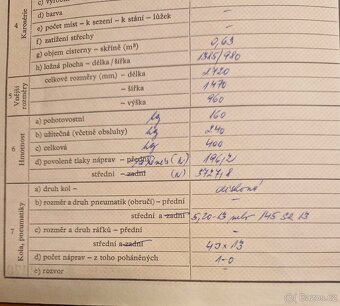 c) výrobní
d) barva –
e) počet míst – k sezení – k stání – lůžek –
f) zatížení střechy –
g) objem cisterny – skříně (m³) 0,63
h) ložná plocha – délka/šířka 1385/980
celkové rozměry (mm) – délka 2420
– šířka 1470
– výška 960
a) pohotovostní kg 160
b) užitečná (včetně obsluhy) kg 240
c) celková kg 400
d) povolené tlaky náprav – přední (N) 196/2
střední – zadní (N) 3727/8
a) druh kol – disková
b) rozměr a druh pneumatik (obručí) – přední –
střední a zadní 5,20-13 nebo 145 SR 13
c) rozměr a druh ráfků – přední –
střední a zadní 4J x 13
d) počet náprav – z toho poháněných 1-0
e) rozvor –
4
Karosérie
5
Vnější rozměry
6
Hmotnost
7
Kola, pneumatiky
Bazos.cz